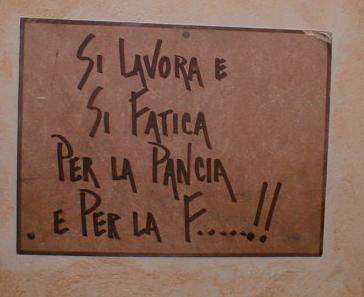 SI LAVORA E
SI FATICA
PER LA PANCIA
E PER LA F......!!